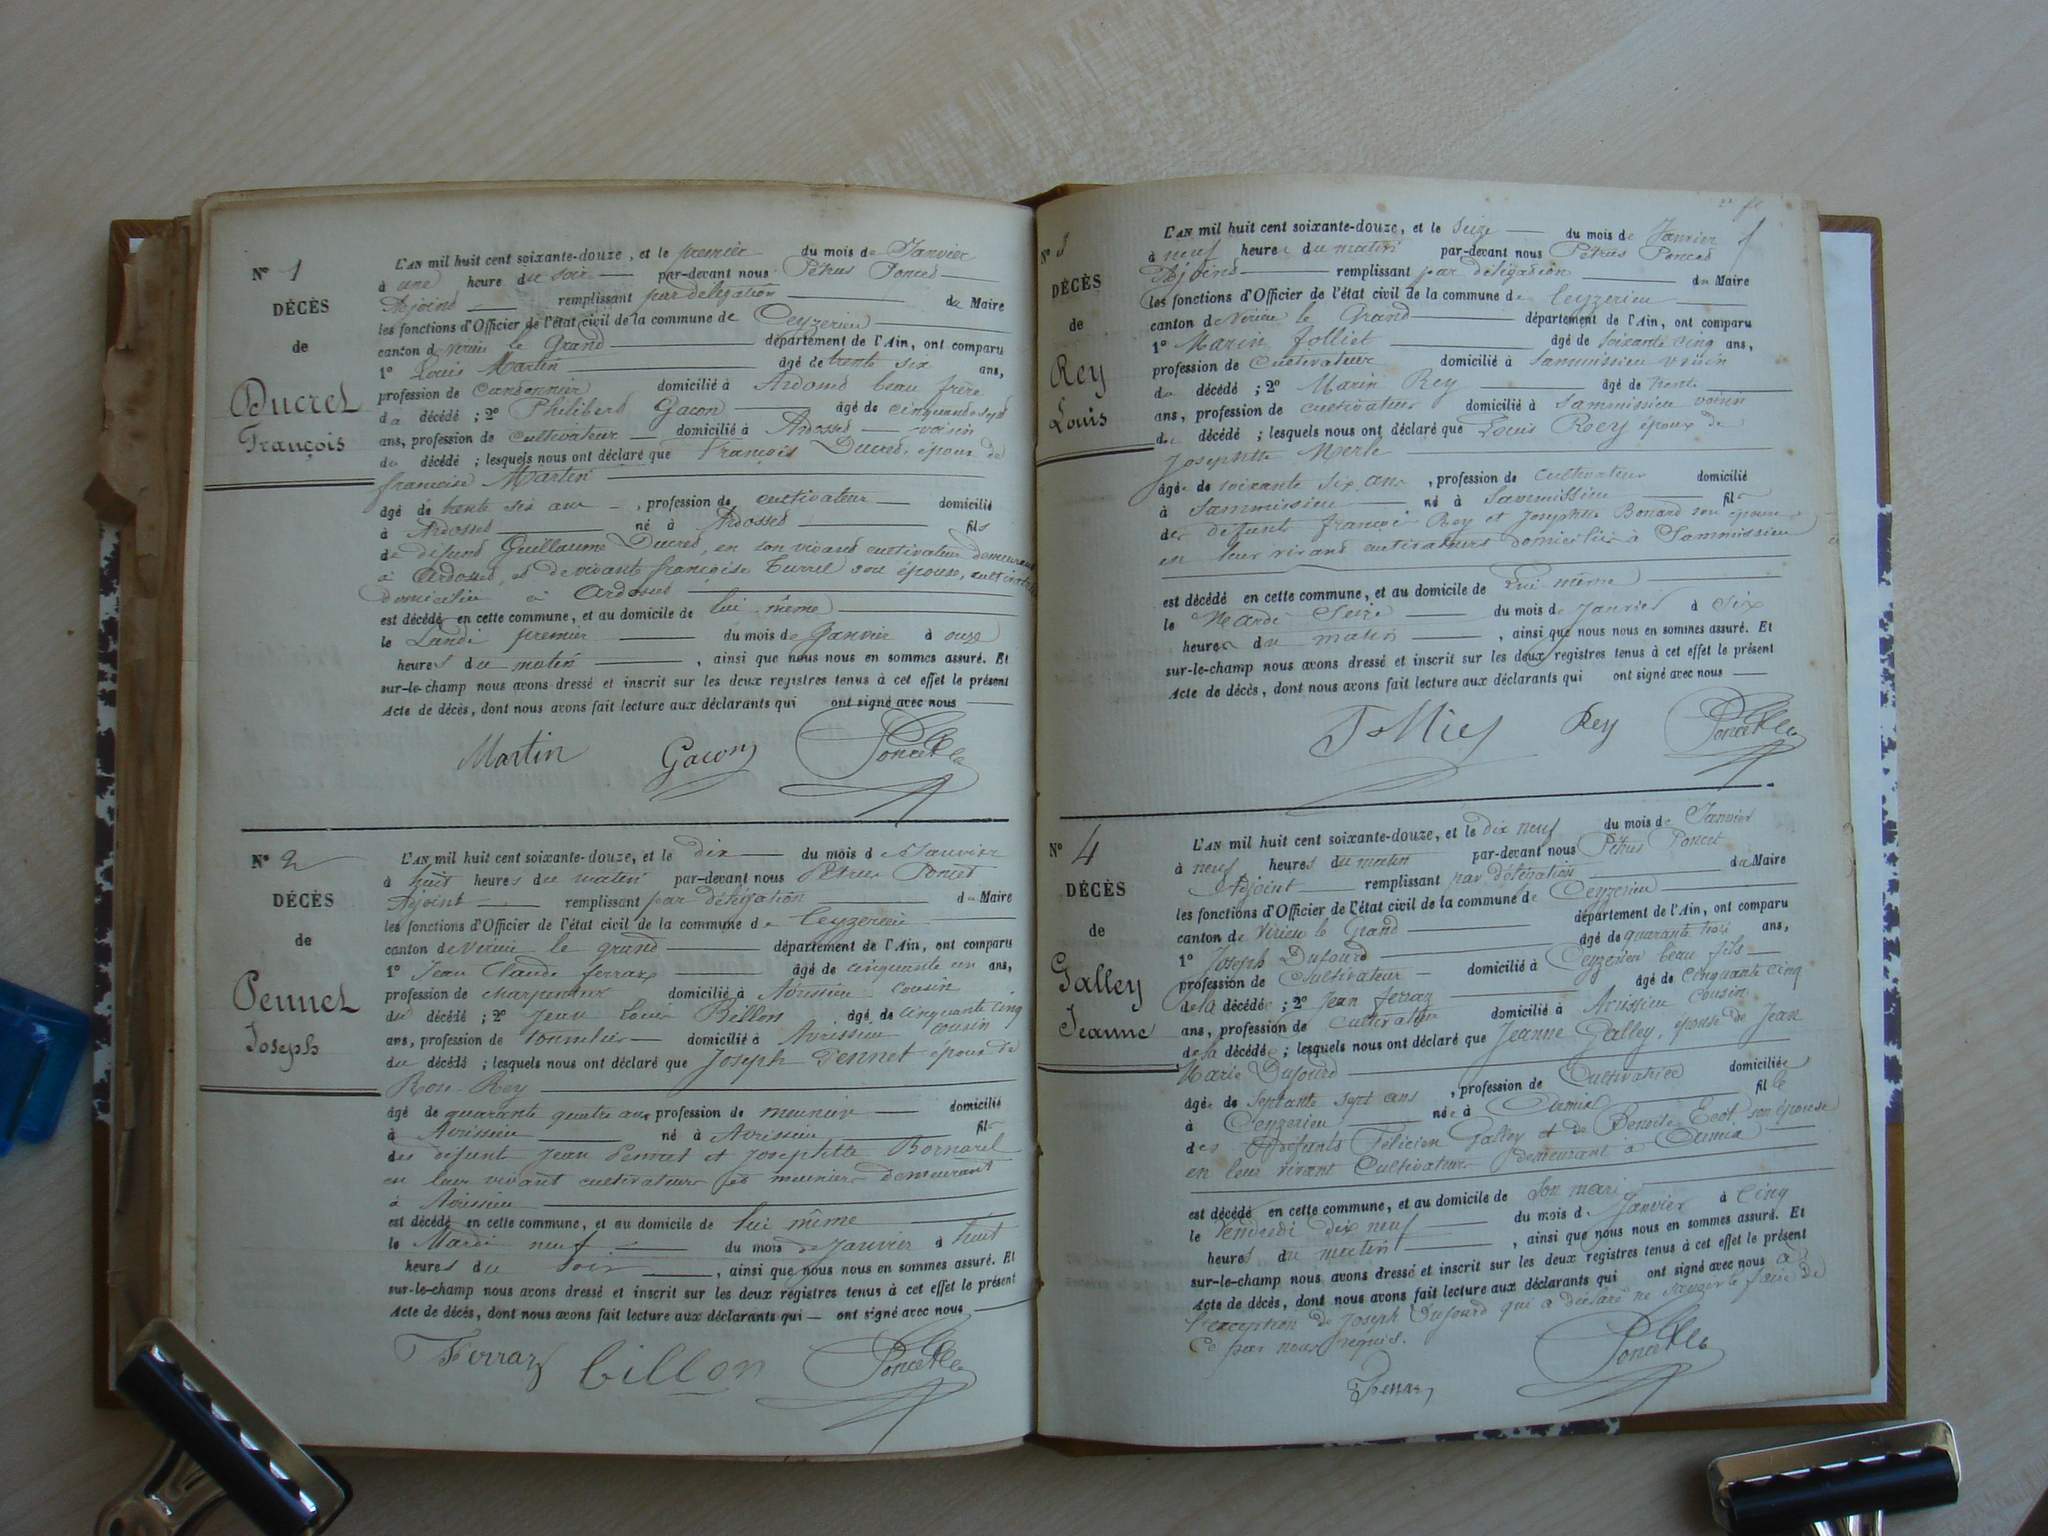 N° 1
DÉCÈS
de
Ducret
François
L'AN mil huit cent soixante-douze, et le premier du mois de Janvier
à une heure du soir par-devant nous Pétrus Poncet
Adjoint remplissant par délégation du Maire
les fonctions d'Officier de l'état civil de la commune de Ceyzerieu
canton de virieu le Grand département de l'Ain, ont comparu
1° Louis Martin âgé de trente six ans,
profession de Cantonnier domicilié à Ardosset beau frère
du décédé ; 2° Philibert Gacon âgé de cinquante sept
ans, profession de cultivateur domicilié à Ardosset voisin
du décédé ; lesquels nous ont déclaré que François Ducret, époux de
françoise Martin
âgé de trente six ans, profession de cultivateur domicilié
à Ardosset né à Ardosset fils
de défunt Guillaume Ducret, en son vivant cultivateur demeurant
à Ardosset, et de vivante françoise Turrel son épouse,
domiciliée à Ardosset
est décédé en cette commune, et au domicile de lui même
le Lundi premier du mois de Janvier à onze
heures du matin, ainsi que nous nous en sommes assuré. Et
sur-le-champ nous avons dressé et inscrit sur les deux registres tenus à cet effet le présent
Acte de décès, dont nous avons fait lecture aux déclarants qui ont signé avec nous
Martin Gacon Poncet
N° 2
DÉCÈS
de
Pennet
Joseph
L'AN mil huit cent soixante-douze, et le dix du mois de Janvier
à huit heures du matin par-devant nous Pétrus Poncet
Adjoint remplissant par délégation du Maire
les fonctions d'Officier de l'état civil de la commune de Ceyzerieu
canton de Virieu le grand département de l'Ain, ont comparu
1° Jean Claude ferraz âgé de cinquante un ans,
profession de charpentier domicilié à Avrissieu cousin
du décédé ; 2° Jean Louis Billon âgé de cinquante cinq
ans, profession de tonnelier domicilié à Avrissieu cousin
du décédé ; lesquels nous ont déclaré que Joseph Pennet époux de
Rose Rey
âgé de quarante quatre ans, profession de meunier domicilié
à Avrissieu né à Avrissieu fils
des défunt Jean Pennet et Josephte Bornarel
en leur vivant cultivateurs et meunier demeurant
à Avrissieu
est décédé en cette commune, et au domicile de lui même
le Mardi neuf du mois de Janvier à huit
heures du soir, ainsi que nous nous en sommes assuré. Et
sur-le-champ nous avons dressé et inscrit sur les deux registres tenus à cet effet le présent
Acte de décès, dont nous avons fait lecture aux déclarants qui ont signé avec nous
Ferraz Billon Poncet
N° 3
DÉCÈS
de
Rey
Louis
L'AN mil huit cent soixante-douze, et le Seize du mois de Janvier
à neuf heures du matin par-devant nous Pétrus Poncet
Adjoint remplissant par délégation du Maire
les fonctions d'Officier de l'état civil de la commune de Ceyzerieu
canton de Virieu le Grand département de l'Ain, ont comparu
1° Marin Jolliet âgé de soixante cinq ans,
profession de Cultivateur domicilié à Sammissieu voisin
du décédé ; 2° Marin Rey âgé de trente
ans, profession de cultivateur domicilié à Sammissieu voisin
du décédé ; lesquels nous ont déclaré que Louis Rey époux de
Josephte Merle
âgé de soixante six ans, profession de cultivateur domicilié
à Sammissieu né à Sammissieu fils
des défunts françois Rey et Josephte Bonard son épouse
en leur vivant cultivateurs domiciliés à Sammissieu
est décédé en cette commune, et au domicile de Lui même
le Mardi Seize du mois de Janvier à Six
heures du matin, ainsi que nous nous en sommes assuré. Et
sur-le-champ nous avons dressé et inscrit sur les deux registres tenus à cet effet le présent
Acte de décès, dont nous avons fait lecture aux déclarants qui ont signé avec nous
Jolliet Rey Poncet
N° 4
DÉCÈS
de
Galley
Jeanne
L'AN mil huit cent soixante-douze, et le dix neuf du mois de Janvier
à neuf heures du matin par-devant nous Pétrus Poncet
Adjoint remplissant par délégation du Maire
les fonctions d'Officier de l'état civil de la commune de Ceyzerieu
canton de Virieu le Grand département de l'Ain, ont comparu
1° Joseph Dufourd âgé de quarante trois ans,
profession de Cultivateur domicilié à Ceyzerieu beau fils
de la décédée ; 2° Jean ferraz âgé de Cinquante cinq
ans, profession de Cultivateur domicilié à Avrissieu Cousin
de la décédée ; lesquels nous ont déclaré que Jeanne Galley, épouse de Jean
Marie Dufourd
âgée de Septante sept ans, profession de Cultivatrice domiciliée
à Ceyzerieu née à Armix fille
des défunts Félicien Galley et de Benoite Ecot son épouse
en leur vivant Cultivateurs demeurant à Armix
est décédé en cette commune, et au domicile de Son mari
le Vendredi dix neuf du mois de Janvier à Cinq
heures du matin, ainsi que nous nous en sommes assuré. Et
sur-le-champ nous avons dressé et inscrit sur les deux registres tenus à cet effet le présent
Acte de décès, dont nous avons fait lecture aux déclarants qui ont signé avec nous à
l'exception de Joseph Dufourd qui a déclaré ne savoir le faire de
Ce par nous requis.
Ferraz Poncet